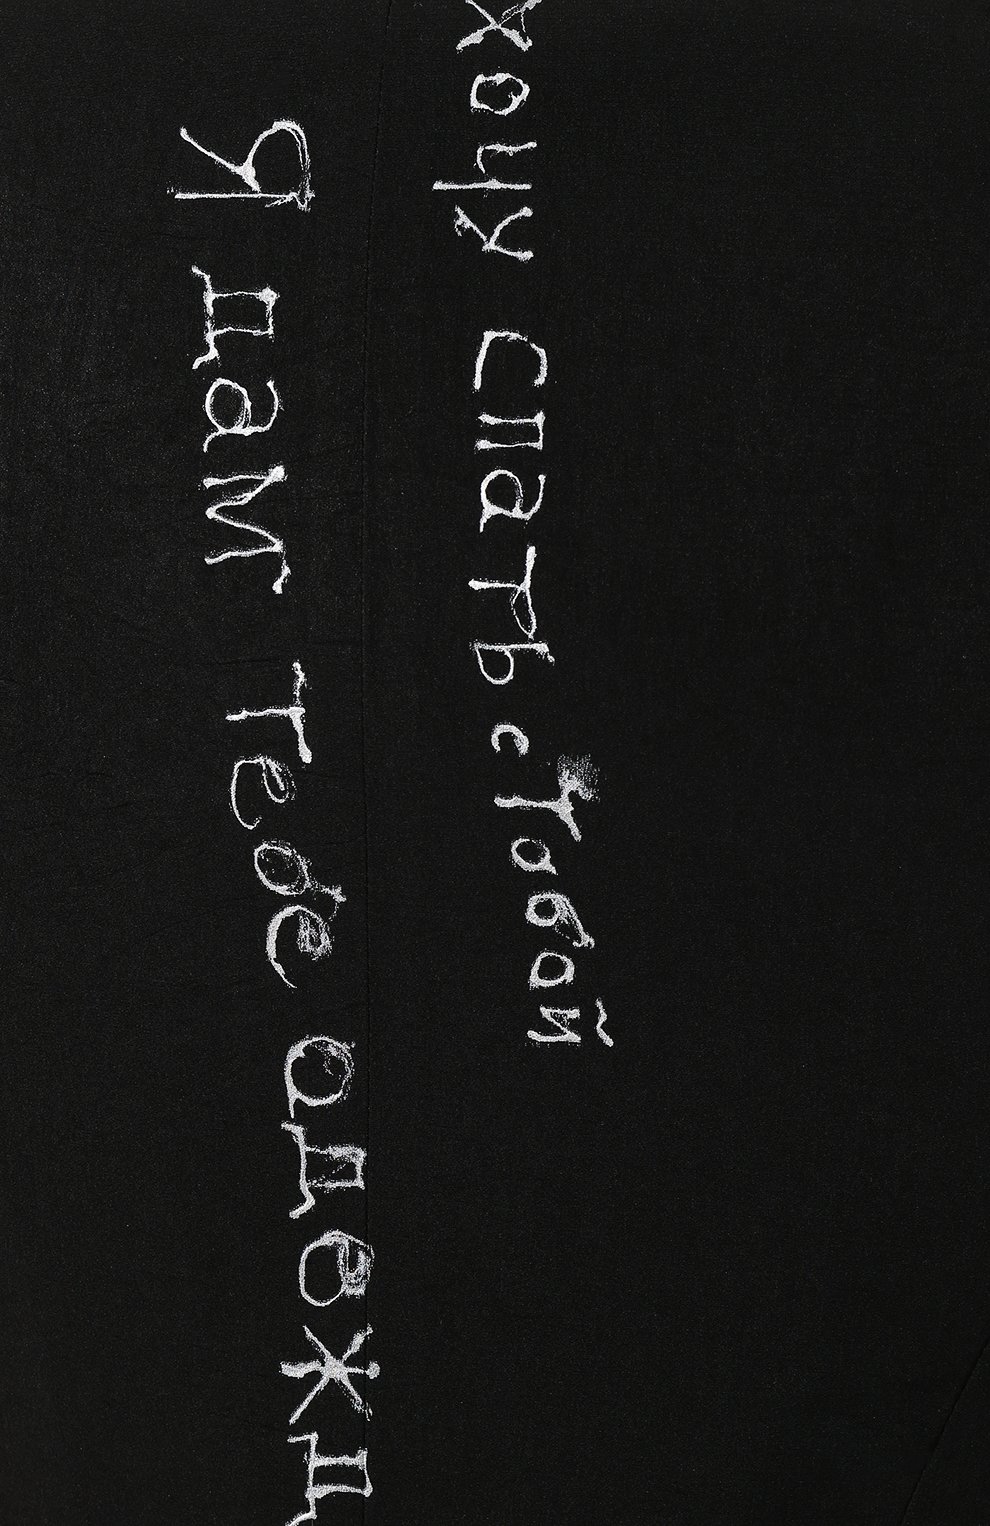 хочу спать с Тобай
Я дам тебе адежд